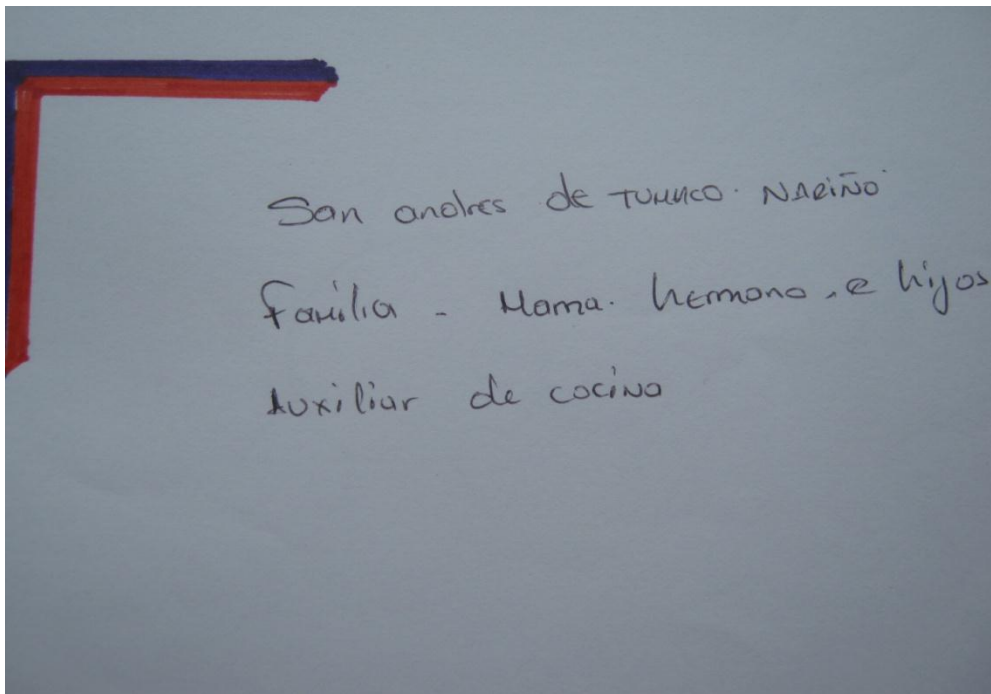 San andres de TUMACO. NARIÑO.
familia - Mama. hermano, e hijos
Auxiliar de cocina